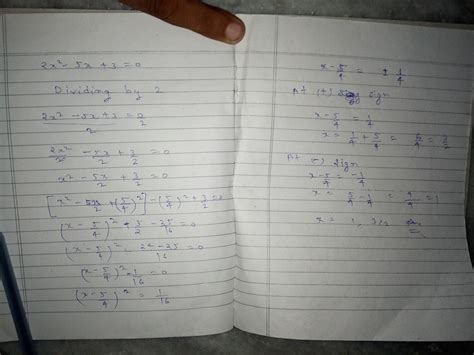 2x² - 5x + 3 = 0
Dividing by 2
2x² - 5x + 3 / 2 = 0/2
2x²/2 - 5x/2 + 3/2 = 0
x² - 5x/2 + 3/2 = 0
[x² - 5x/2 + (5/4)²] - (5/4)² + 3/2 = 0
(x - 5/4)² + 3/2 - 25/16 = 0
(x - 5/4)² 24 - 25/16 = 0
(x - 5/4)² - 1/16 = 0
(x - 5/4)² = 1/16
x - 5/4 = ± 1/4
At (+) sign
x - 5/4 = 1/4
x = 1/4 + 5/4 = 6/4 = 3/2
At (-) sign
x - 5/4 = -1/4
x = 5/4 - 1/4 = 4/4 = 1
x = 1, 3/2